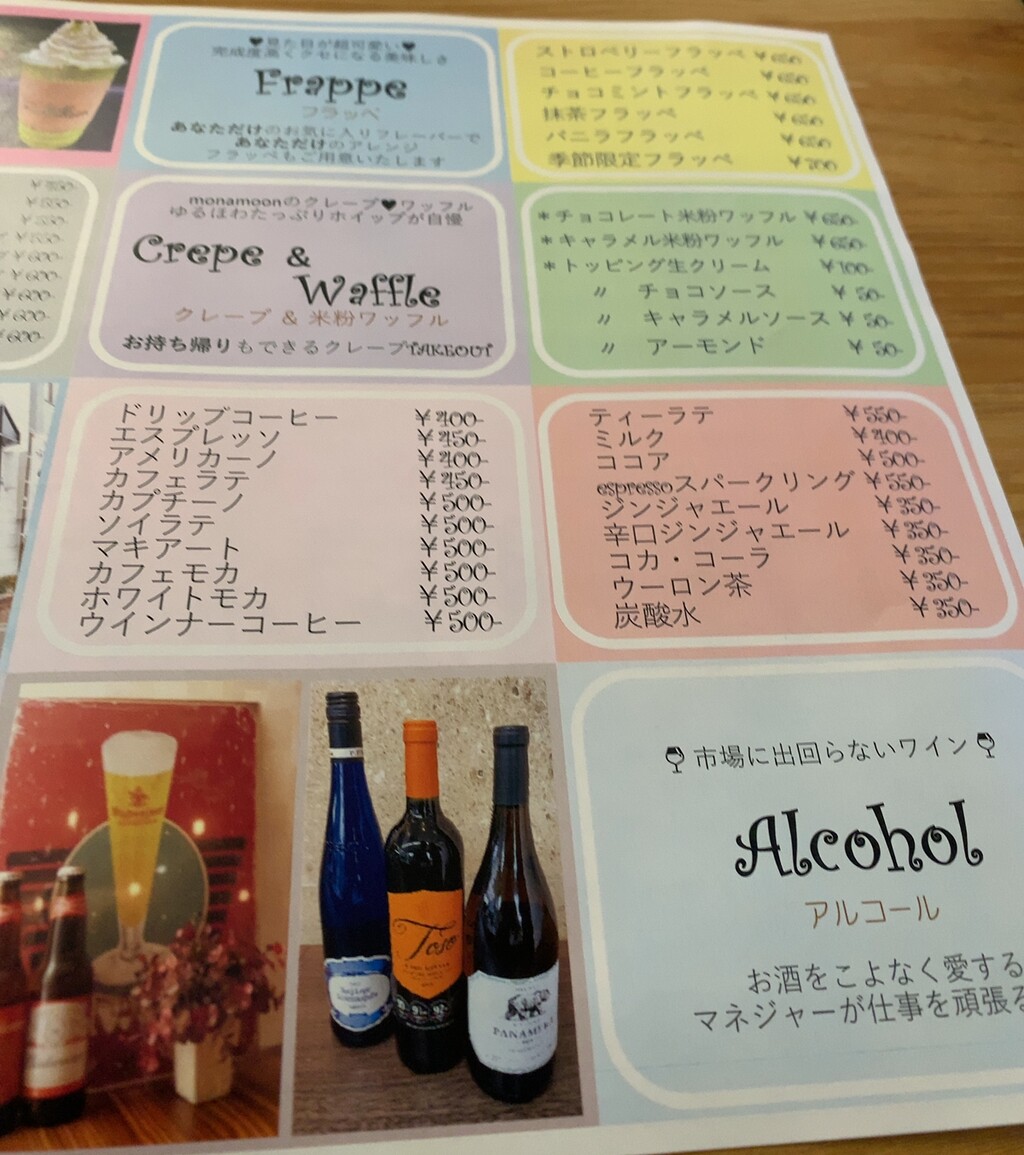 ♥見た目が超可愛い♥
完成度高くクセになる美味しさ
Frappe
フラッペ
あなただけのお気に入りフレーバーで
あなただけのアレンジ
フラッペもご用意いたします
ストロベリーフラッペ ¥650
コーヒーフラッペ ¥650
チョコミントフラッペ ¥650
抹茶フラッペ ¥650
バニラフラッペ ¥650
季節限定フラッペ ¥700
¥550-
¥550-
¥550-
¥550-
¥600-
¥600-
¥600-
¥600-
¥600-
monamoonのクレープ♥ワッフル
ゆるほわたっぷりホイップが自慢
Crepe &
Waffle
クレープ & 米粉ワッフル
お持ち帰りもできるクレープTAKEOUT
*チョコレート米粉ワッフル ¥650-
*キャラメル米粉ワッフル ¥650-
*トッピング生クリーム ¥100-
〃 チョコソース ¥ 50-
〃 キャラメルソース ¥ 50-
〃 アーモンド ¥ 50-
ドリップコーヒー ¥400-
エスプレッソ ¥450-
アメリカーノ ¥400-
カフェラテ ¥450-
カプチーノ ¥500-
ソイラテ ¥500-
マキアート ¥500-
カフェモカ ¥500-
ホワイトモカ ¥500-
ウインナーコーヒー ¥500-
ティーラテ ¥550-
ミルク ¥400-
ココア ¥500-
espressoスパークリング ¥550-
ジンジャエール ¥350-
辛口ジンジャエール ¥350-
コカ・コーラ ¥350-
ウーロン茶 ¥350-
炭酸水 ¥350-
市場に出回らないワイン
Alcohol
アルコール
お酒をこよなく愛する
マネジャーが仕事を頑張る
Toso